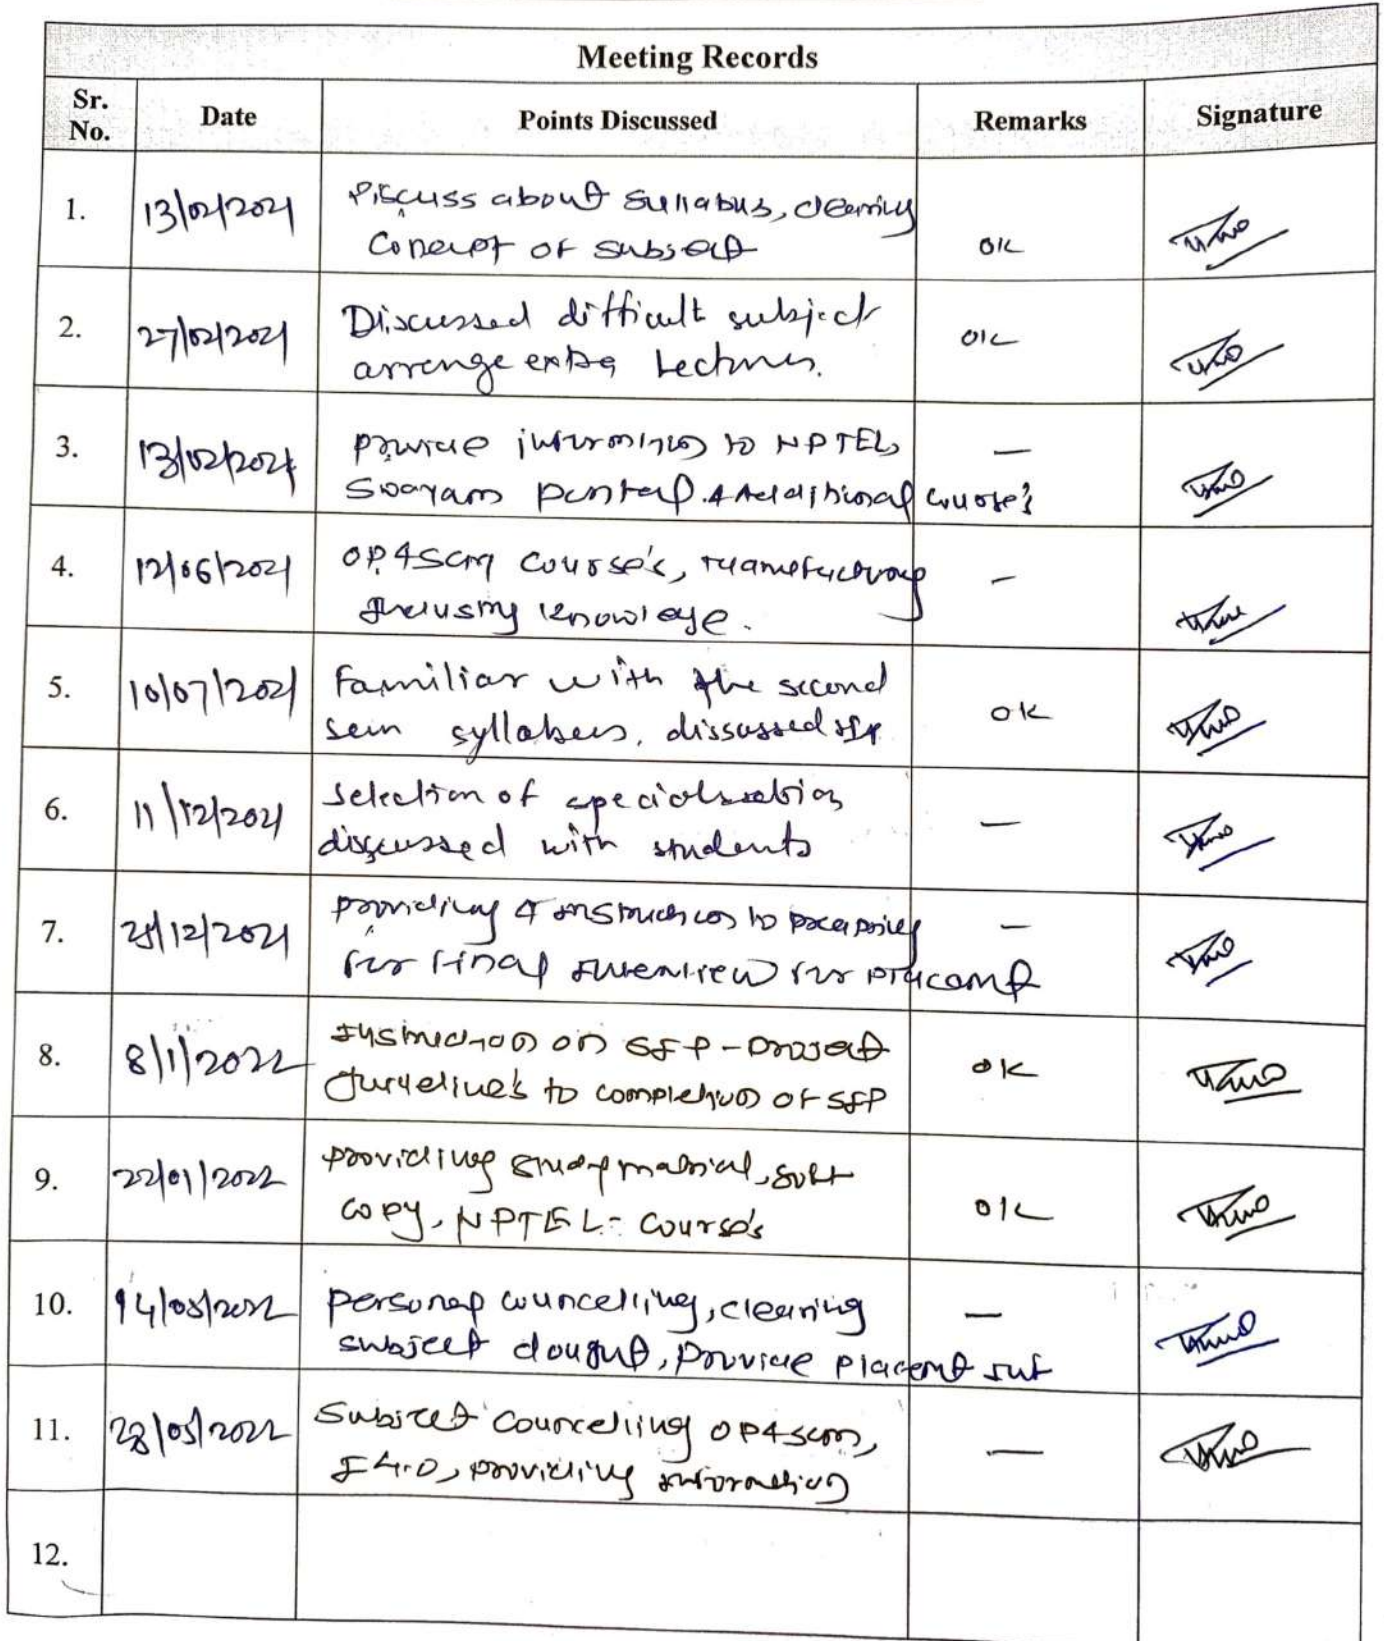 Meeting Records
Sr. No. Date Points Discussed Remarks Signature
1. 13/02/2021 Discuss about Syllabus, clearing
Concept of subject OK
2. 27/02/2021 Discussed difficult subject OK
arrange extra Lectures.
3. 13/02/2021 provide information to NPTEL, —
Swayam portal & Additional course's
4. 12/06/2021 OP&SCM Course's, manufacturing —
Industry knowledge.
5. 10/07/2021 Familiar with the second
sem syllabus, discussed OK
6. 11/12/2021 Selection of specialisation
discussed with students —
7. 12/2021 providing & instruction to —
for final interview for placement
8. 8/1/2022 Instruction on SIP - project OK
Guideline's to completion of SIP
9. 22/01/2022 providing study material, soft
copy, NPTEL - Course's OK
10. 14/05/2022 personal councelling, clearing —
subject dought, Provide placement
11. 28/05/2022 Subject Councelling OP&SCM, —
I 4.0, providing information
12.